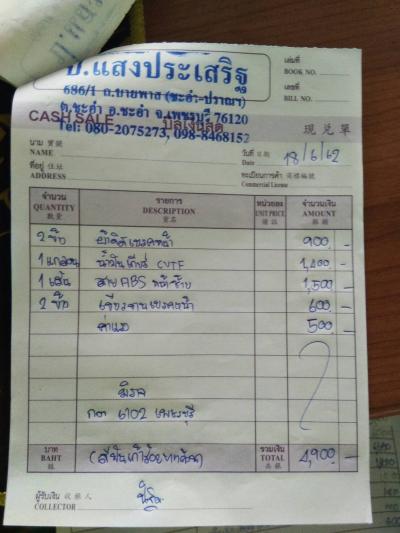 บ.แสงประเสริฐ
686/1 ถ.บายพาส (ชะอำ-ปราณฯ)
ต.ชะอำ อ.ชะอำ จ.เพชรบุรี 76120
Tel: 080-2075273, 098-8468152
เล่มที่
BOOK NO.
เลขที่
BILL NO.
CASH SALE บิลเงินสด 現兑單
นาม 寶號
NAME
วันที่ 日期
Date 18/6/62
ที่อยู่ 住址
ADDRESS
ทะเบียนการค้า 商標編號
Commercial License
จำนวน รายการ หน่วยละ จำนวนเงิน
QUANTITY DESCRIPTION UNIT PRICE AMOUNT
數量 貨名
2 ชิ้น 900 -
1 แกลลอน น้ำมันเกียร์ CVTF 1,400 -
1 เส้น สาย ABS หน้าซ้าย 1,500 -
2 ชิ้น 600 -
ค่าแรง 500 -
มิราจ
กถ 6102 เพชรบุรี
บาท รวมเงิน
BAHT (สี่พันเก้าร้อยบาทถ้วน) TOTAL 4,900 -
ผู้รับเงิน 收銀人
COLLECTOR